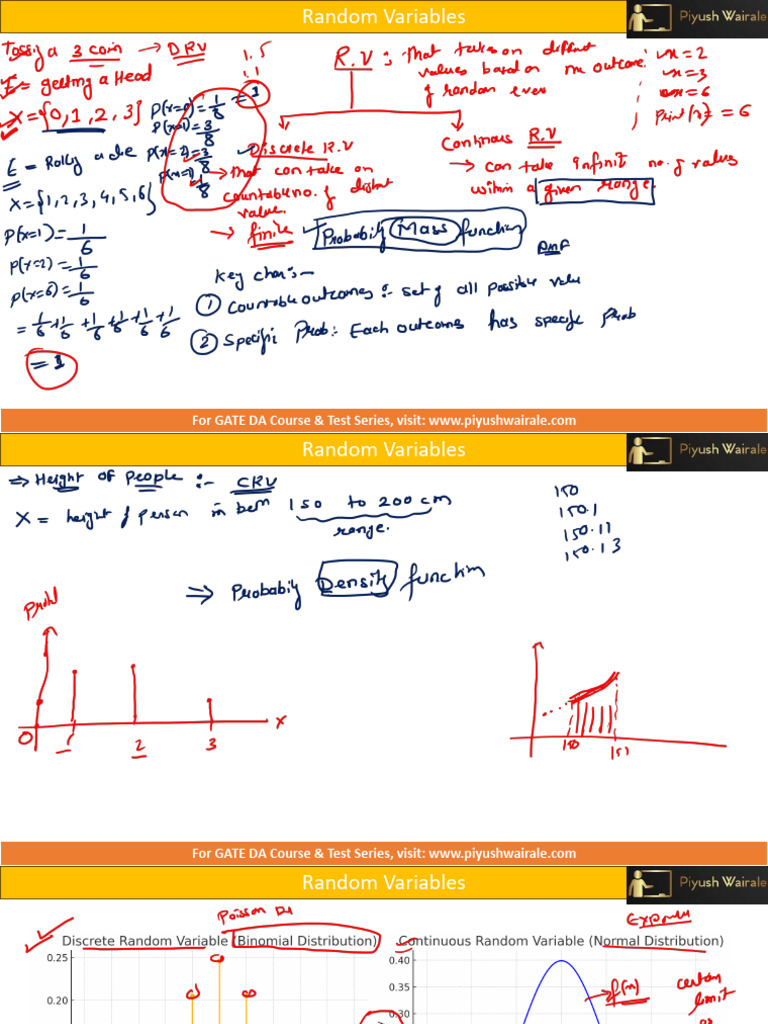 Random Variables
Piyush Wairale
Tossig a 3 coin → DRV
E = getting a Head
X = {0, 1, 2, 3}
1.5
1.1
P(x=0) = 1/8
P(x=1) = 3/8
P(x=2) = 3/8
= 1
R.V : That takes on
values based on outcome
of random even
x = 2
x = 3
x = 6
print(x) = 6
Discrete R.V
→ that can take on
countable no. of distnt
value.
→ finite
Continous R.V
→ can take infinit no. of values
within a given range.
E = Rolly a die
X = {1, 2, 3, 4, 5, 6}
P(x=1) = 1/6
P(x=2) = 1/6
P(x=6) = 1/6
= 1/6 + 1/6 + 1/6 + 1/6 + 1/6 + 1/6
= 1
Probabily Mass function
PMF
Key char :-
① Countable outcomes :- set of all possible value
② Specific Prob : Each outcoms has specific Prob
For GATE DA Course & Test Series, visit: www.piyushwairale.com
Random Variables
Piyush Wairale
⇒ Height of People :- CRV
X = height of person in betn 150 to 200 cm
range.
150
150.1
150.11
150.13
⇒ Probabily Density function
0 1 2 3 x
150 151
For GATE DA Course & Test Series, visit: www.piyushwairale.com
Random Variables
Piyush Wairale
Poisson
Discrete Random Variable (Binomial Distribution)
0.25
0.20
Continuous Random Variable (Normal Distribution)
0.40
0.35
0.30
f(x)
certain
limit